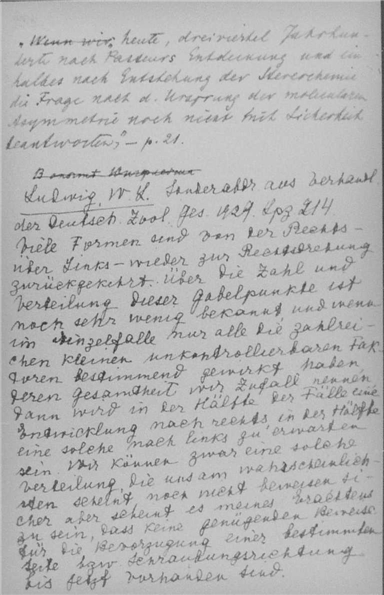 „Wenn wir heute, dreiviertel Jahrhun-
derte nach Pasteurs Entdeckung und ein
halbes nach Entstehung der Stereochemie
die Frage nach d. Ursprung der molecularen
Asymmetrie noch nicht mit Sicherheit
beantworten," — p. 21.
Ludwig, W. Sonderabdr aus Verhandl
der Deutsch. Zool. Ges. 1929. Lpz 214.
Viele Formen sind von der Rechts-
über Links – wieder zur Rechtsdrehung
zurückgekehrt. Über die Zahl und
Verteilung dieser Gabelpunkte ist
noch sehr wenig bekannt und wenn
im Einzelfalle nur alle die zahlrei-
chen kleinen unkontrollierbaren Fak-
toren bestimmend gewirkt haben
deren Gesamtheit wir Zufall nennen
dann wird in der Hälfte der Fälle eine
Entwicklung nach rechts in der Hälfte
eine solche nach links zu erwarten
sein. Wir können zwar eine solche
Verteilung, die uns am wahrscheinlich-
sten scheint noch nicht beweisen si-
cher aber scheint es meines Erachtens
zu sein, dass keine genügenden Beweise
für die Bevorzugung einer bestimmten
Seite bzw. Schraubungsrichtung
bis jetzt vorhanden sind.